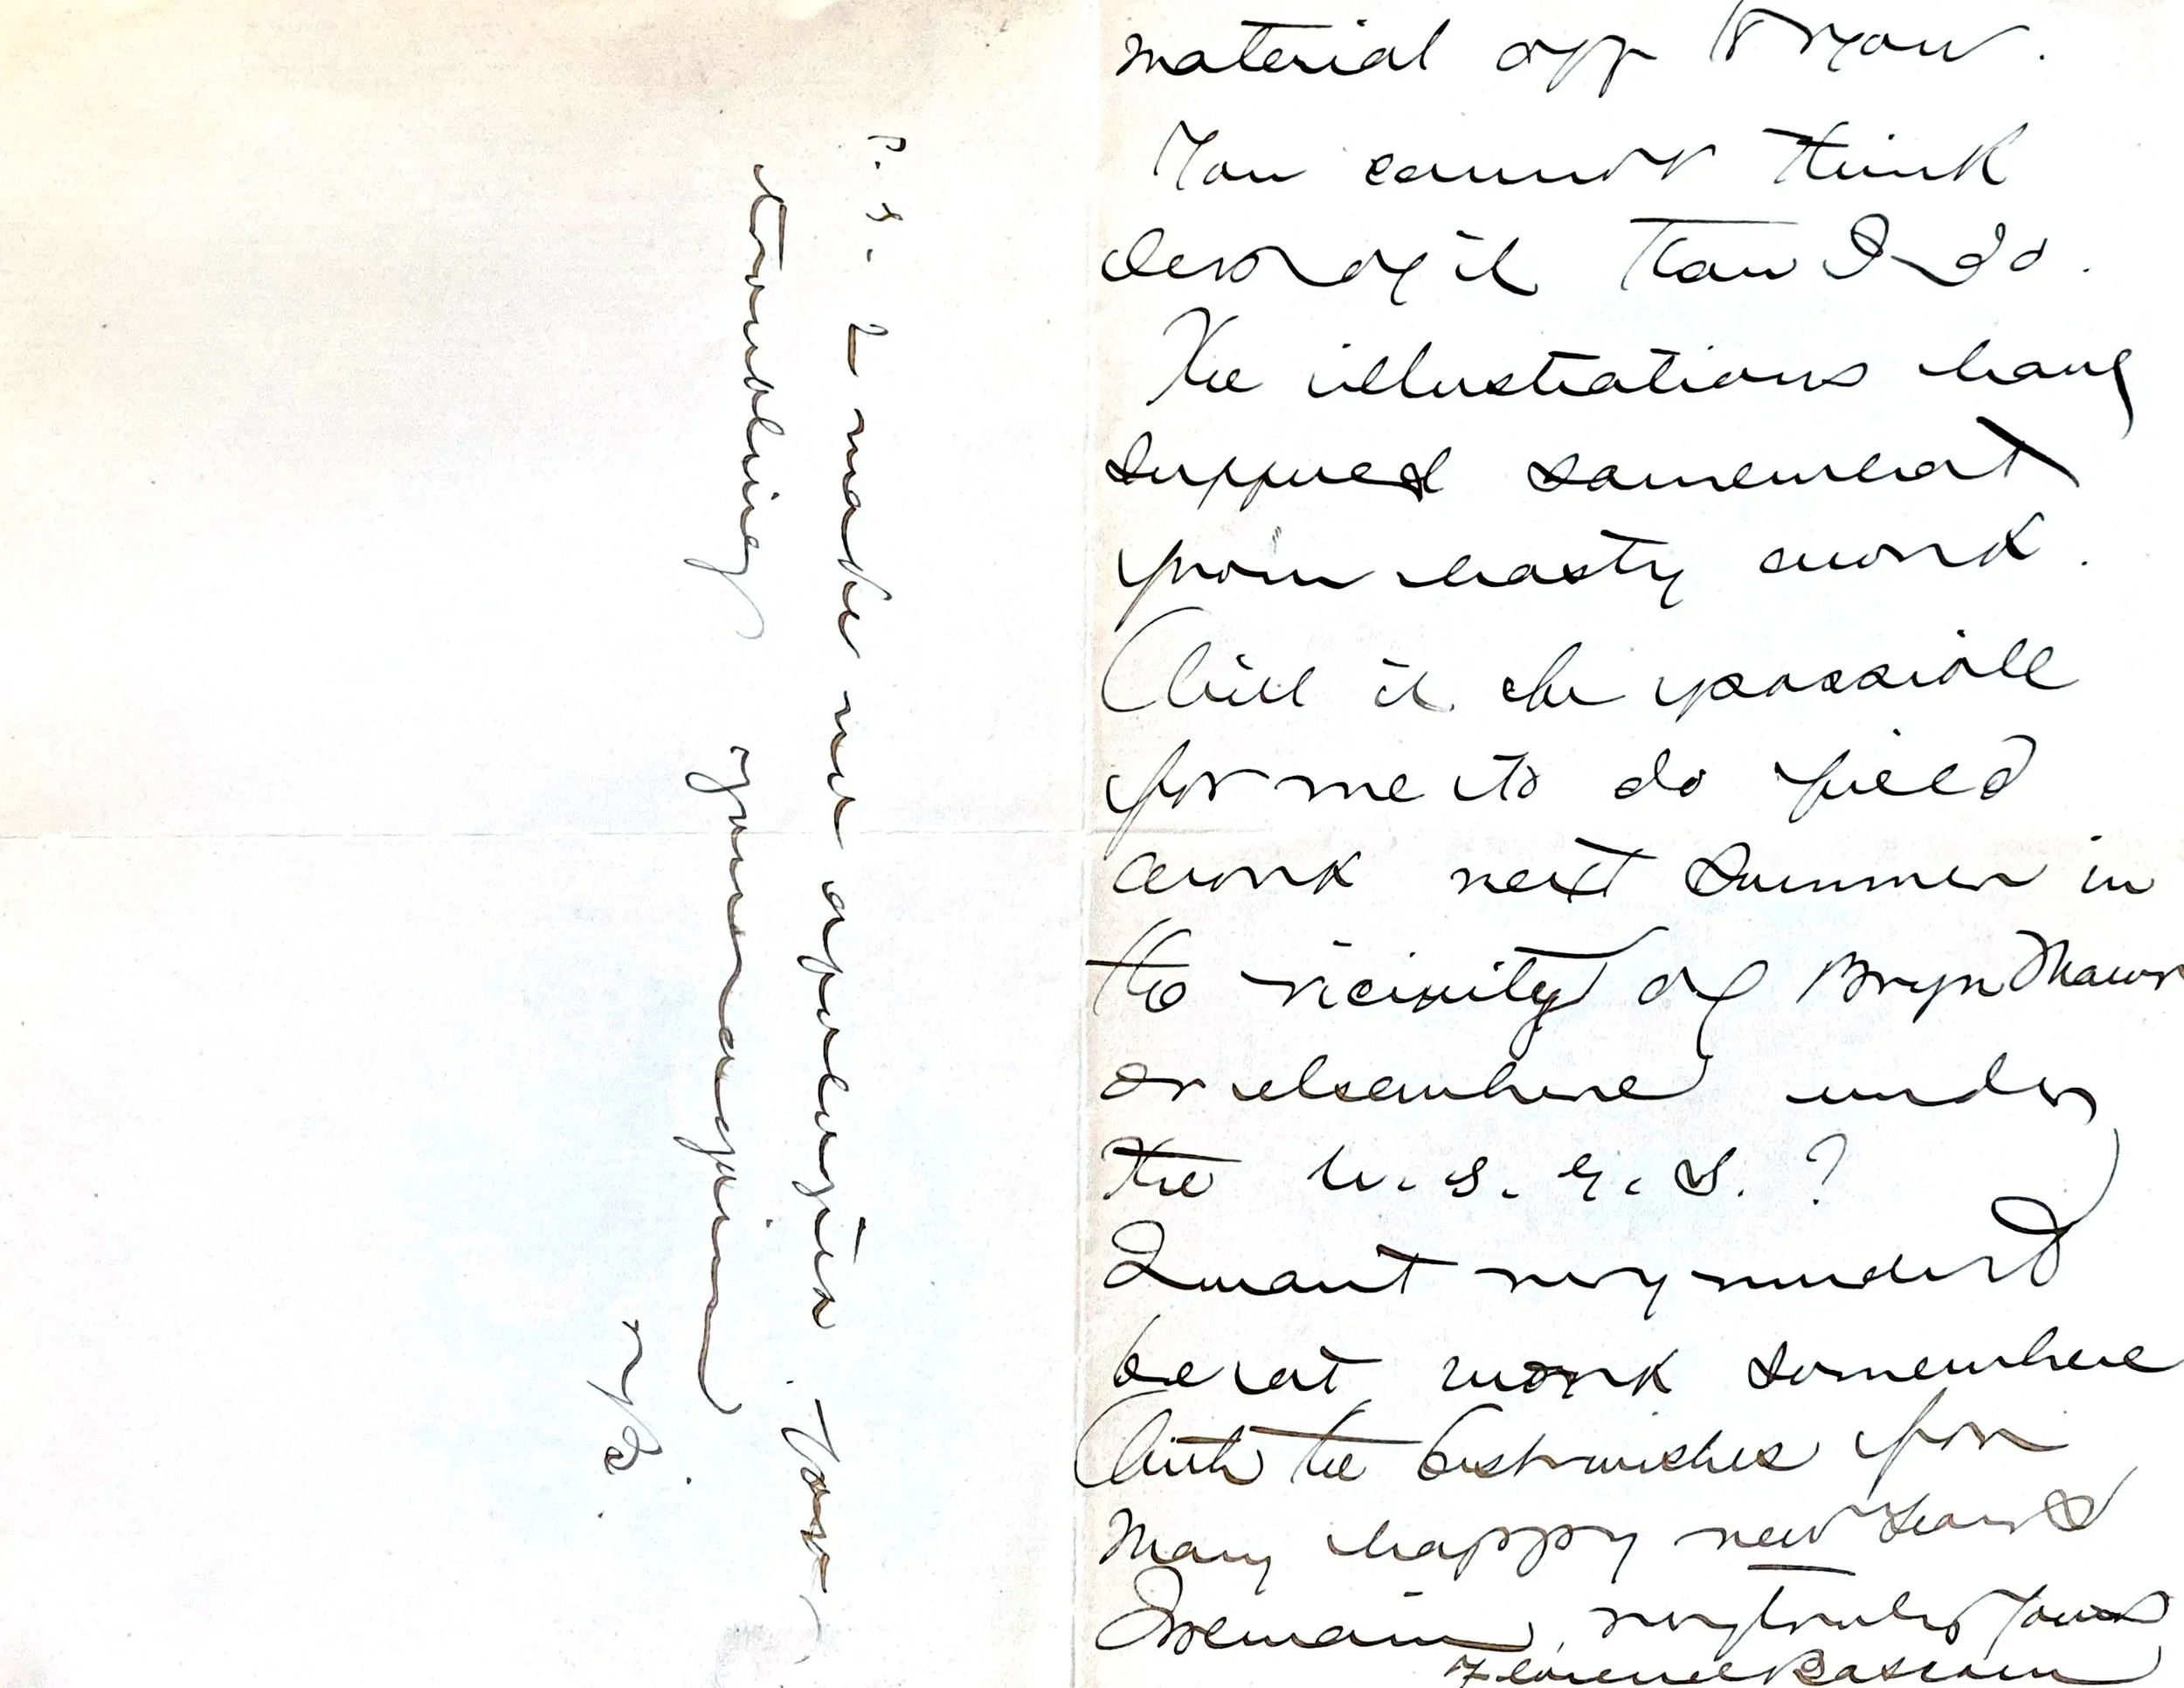 material off to you.
You cannot think
less of it than I do.
The illustrations have
suffered somewhat
from hasty work.
Will it be possible
for me to do field
work next summer in
the vicinity of Bryn Mawr
or elsewhere under
the U.S.G.S.?
I want very much to
be at work somewhere
With the best wishes for
many happy new years
I remain, very truly yours
Florence Bascom
P.S. I make no apologies for
troubling you again
F.B.